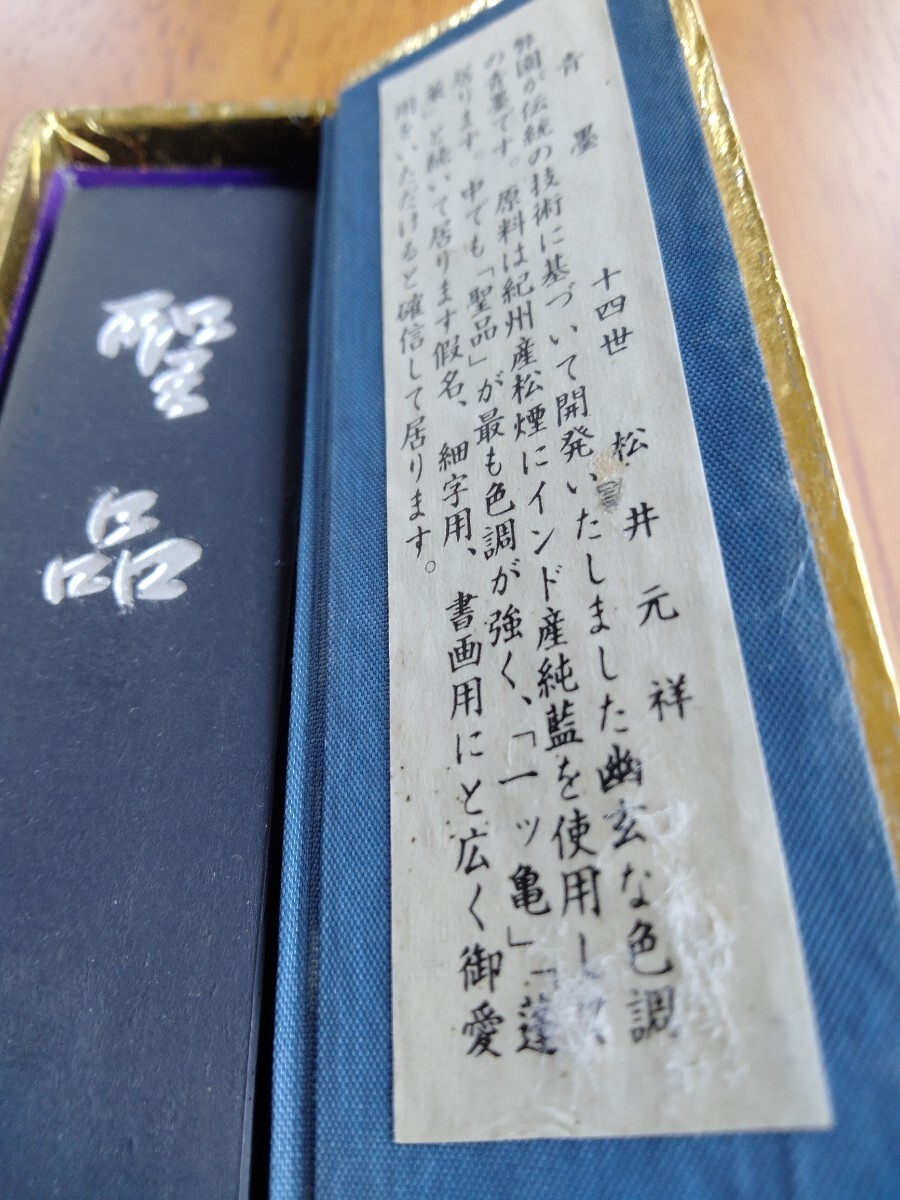 青墨 十四世 松井元祥
弊園が伝統の技術に基づいて開発いたしました幽玄な色調
の青墨です。原料は紀州産松煙にインド産純藍を使用し
居ります。中でも「聖品」が最も色調が強く、「一ッ亀」「蓬
莱」と続いて居ります假名、細字用、書画用にと広く御愛
用をいただけると確信して居ります。
聖品